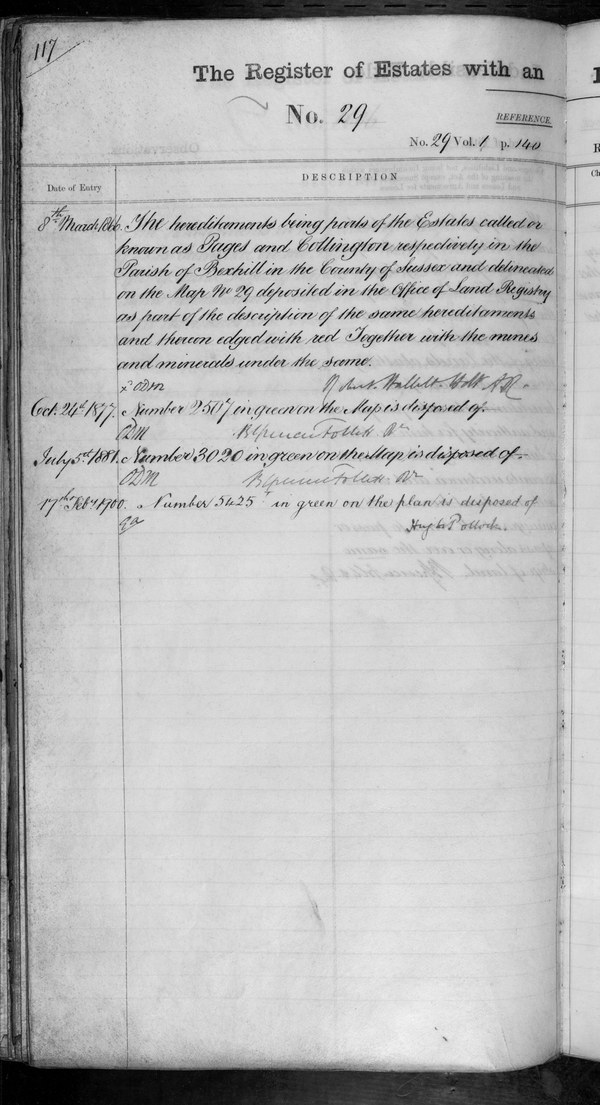 117
The Register of Estates with an
No. 29
REFERENCE.
No. 29 Vol. 1 p. 140
Date of Entry
DESCRIPTION
8th March 1866. The hereditaments being parts of the Estates called or
known as Pages and Collington respectively in the
Parish of Bexhill in the County of Sussex and delineated
on the Map No 29 deposited in the Office of Land Registry
as part of the description of the same hereditaments
and thereon edged with red Together with the mines
and minerals under the same.
ODM
Robert Hallett Holt AR.
Oct. 24th 1877. Number 2507 in green on the Map is disposed of.
ODM
B Spencer Follett
July 5th 1881. Number 3020 in green on the Map is disposed of.
ODM
B Spencer Follett
17th Feby 1900. Number 5425 in green on the plan is disposed of
Hugh Pollock.